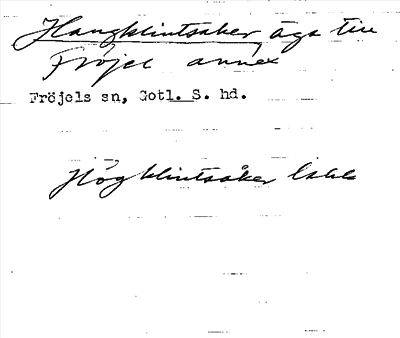 Haugklintsaker äga till
Fröjel annex
Fröjels sn, Gotl. S. hd.
Högklintsåker